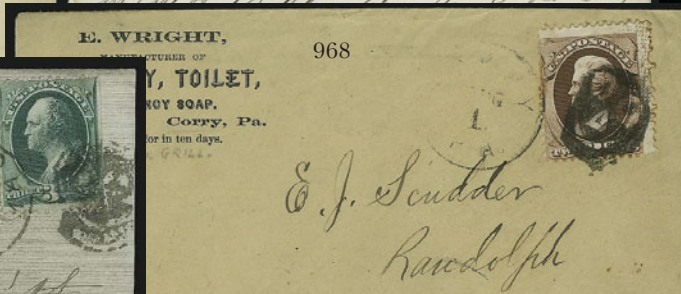 E. WRIGHT,
MANUFACTURER OF
Y, TOILET,
NCY SOAP.
Corry, Pa.
for in ten days.
GRILL.
968
U.S. POSTAGE
E. J. Scudder
Randolph